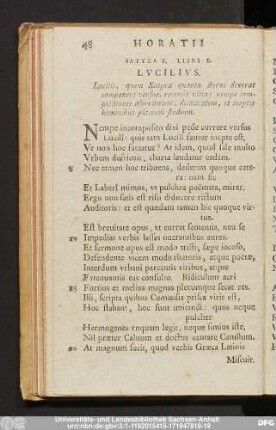 48 HORATII
SATYRA X. LIBRI I.
LVCILIVS.
Lucilii, quem Satyra quarta duros dixerat
componere versus, recenset vitia: nempe com-
hominibus placendi studium.
Nempe incomposito dixi pede currere versus
Lucilî: quis tam Lucilî fautor inepte est,
Vt non hoc fateatur? At idem, quod sale multo
Vrbem defricuit, charta laudatur eadem.
5 Nec tamen hoc tribuens, dederim quoque cete-
ra: nam sic
Et Laberî mimos, vt pulchra poëmata, mirer.
Ergo non satis est risu diducere rictum
Auditoris: et est quaedam tamen hic quoque vir-
tus.
Est breuitate opus, vt currat sententia, neu se
10 Impediat verbis lassas onerantibus aures.
Et sermone opus est modo tristi, saepe iocoso,
Defendente vicem modo rhetoris, atque poëtae,
Interdum vrbani parcentis viribus, atque
Extenuantis eas consulto. Ridiculum acri
15 Fortius et melius magnas plerumque secat res.
Illi, scripta quibus Comoedia prisca viris est,
Hoc stabant, hoc sunt imitandi: quos neque
pulcher
Hermogenes vnquam legit, neque simius iste,
Nil praeter Caluum et doctus cantare Catullum.
20 At magnum fecit, quod verbis Graeca Latinis
Miscuit.
Universitäts- und Landesbibliothek Sachsen-Anhalt
urn:nbn:de:gbv:3:1-1192015415-171947819-19
DFG